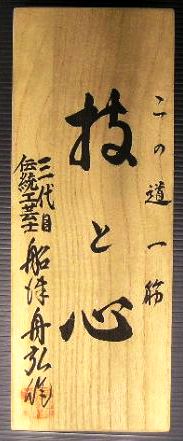 この道一筋
技と心
三代目
伝統工芸士
船津舟弘作